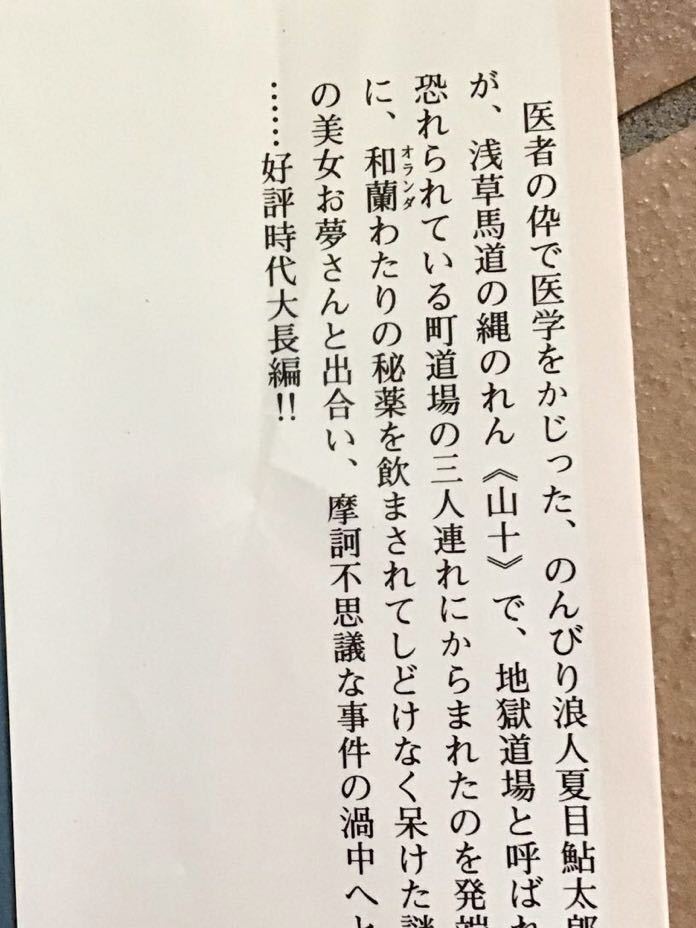 医者の伜で医学をかじった、のんびり浪人夏目鮎太郎
が、浅草馬道の縄のれん《山十》で、地獄道場と呼ばれ
恐れられている町道場の三人連れにからまれたのを発端
に、和蘭わたりの秘薬を飲まされてしどけなく呆けた謎
の美女お夢さんと出合い、摩訶不思議な事件の渦中へと
……好評時代大長編!!
オランダ